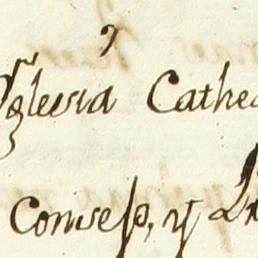 Yglesia Cathe
Consejo, y